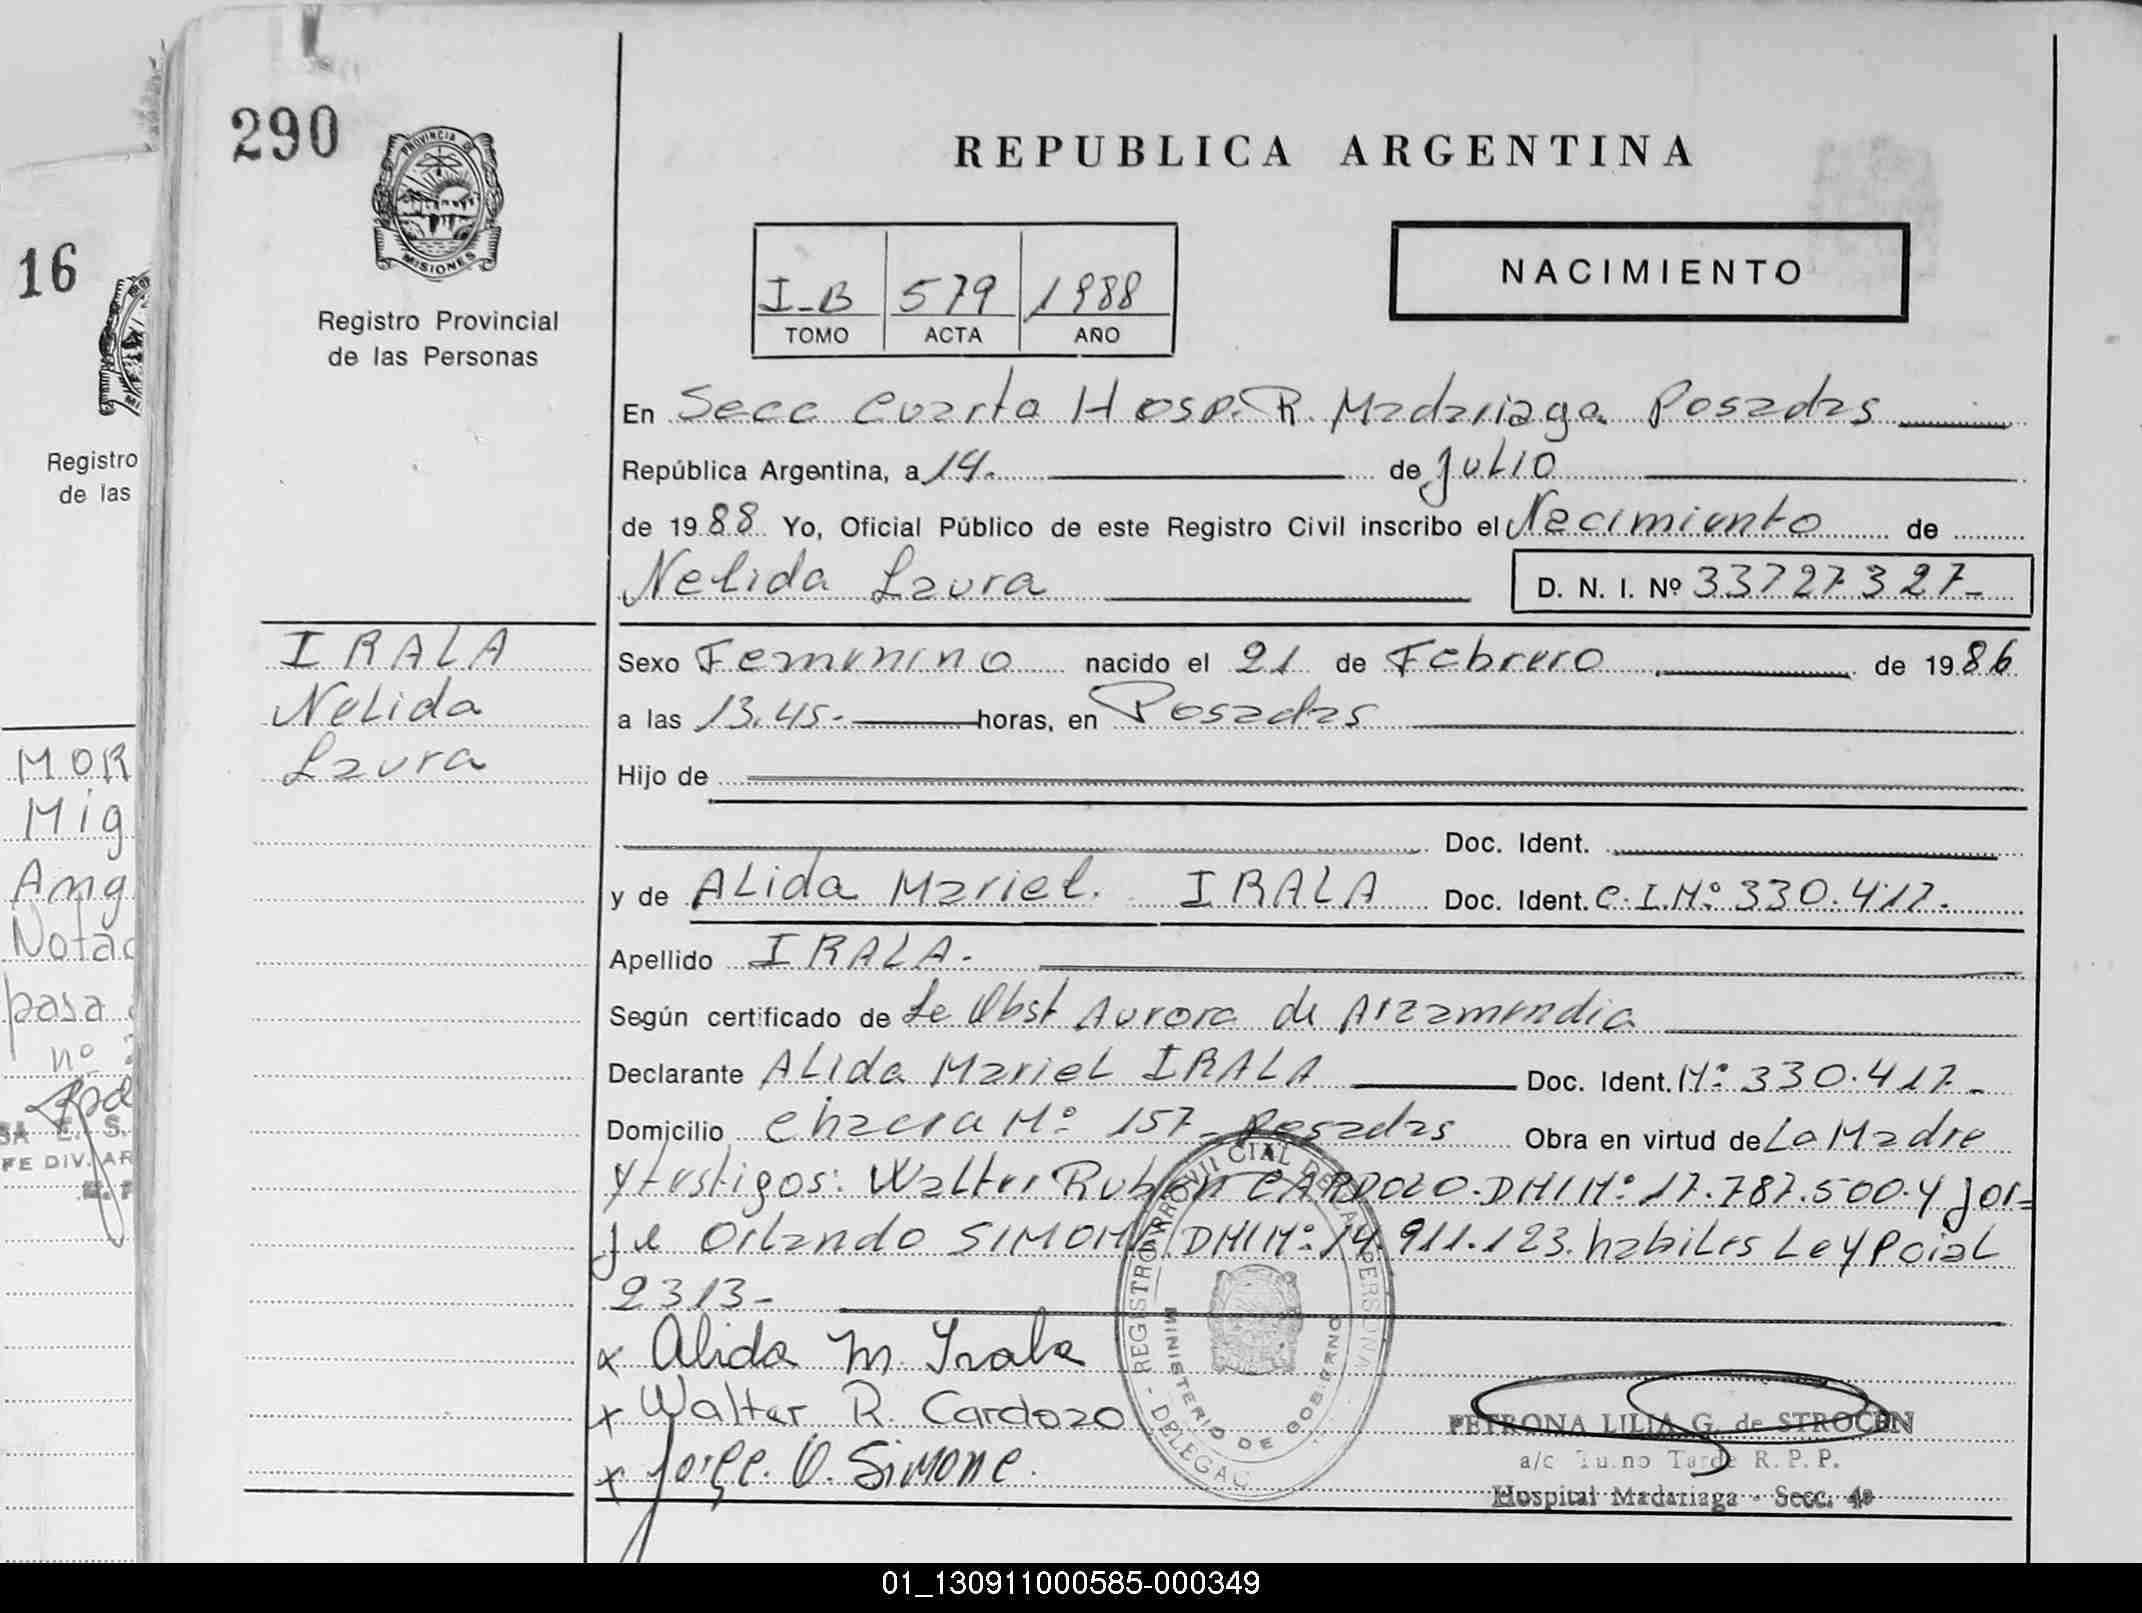 290
PROVINCIA DE
MISIONES
Registro Provincial
de las Personas
REPUBLICA ARGENTINA
I-B 579 1988
TOMO ACTA AÑO
NACIMIENTO
En Secc Cuarta Hosp. R. Madariaga Posadas
República Argentina, a 14. de Julio
de 1988 Yo, Oficial Público de este Registro Civil inscribo el Nacimiento de
Nelida Laura D. N. I. Nº 33727327-
IRALA
Nelida
Laura
Sexo Femenino nacido el 21 de Febrero de 1986
a las 13.45.- horas, en Posadas
Hijo de
Doc. Ident.
y de ALida Mariel. IRALA Doc. Ident. C.I.Nº 330.417.
Apellido IRALA.
Según certificado de La Obst Aurora de Arzamendia
Declarante ALida Mariel IRALA Doc. Ident. Nº 330.417.-
Domicilio Chacra Nº 157- Posadas Obra en virtud de La Madre
y testigos: Walter Ruben CARDOZO. DNI Nº 17.787.500. y Jor=
je Orlando SIMONE DNI Nº 14.911.123. habiles Ley Pcial
2313-
x Alida M. Irala
x Walter R. Cardozo
x Jorge. O. Simone.
MINISTERIO DE GOBIERNO
PETRONA LILIA G. de STROCEN
a/c Turno Tarde R. P. P.
Hospital Madariaga - Secc. 4ª
16
Registro
de las
MOR
Mig
Ang
Notac
pasa
nº
E. S.
FE DIV. AR
01_130911000585-000349